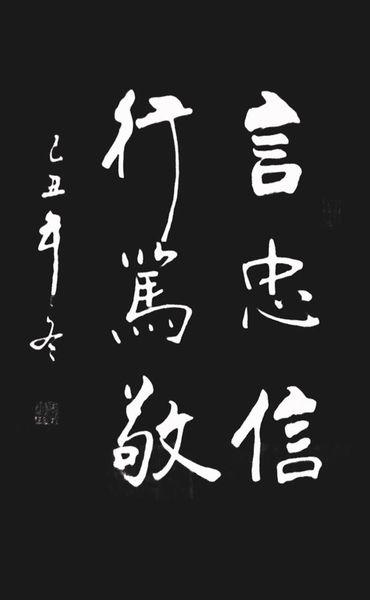 言忠信
行篤敬
己丑年冬